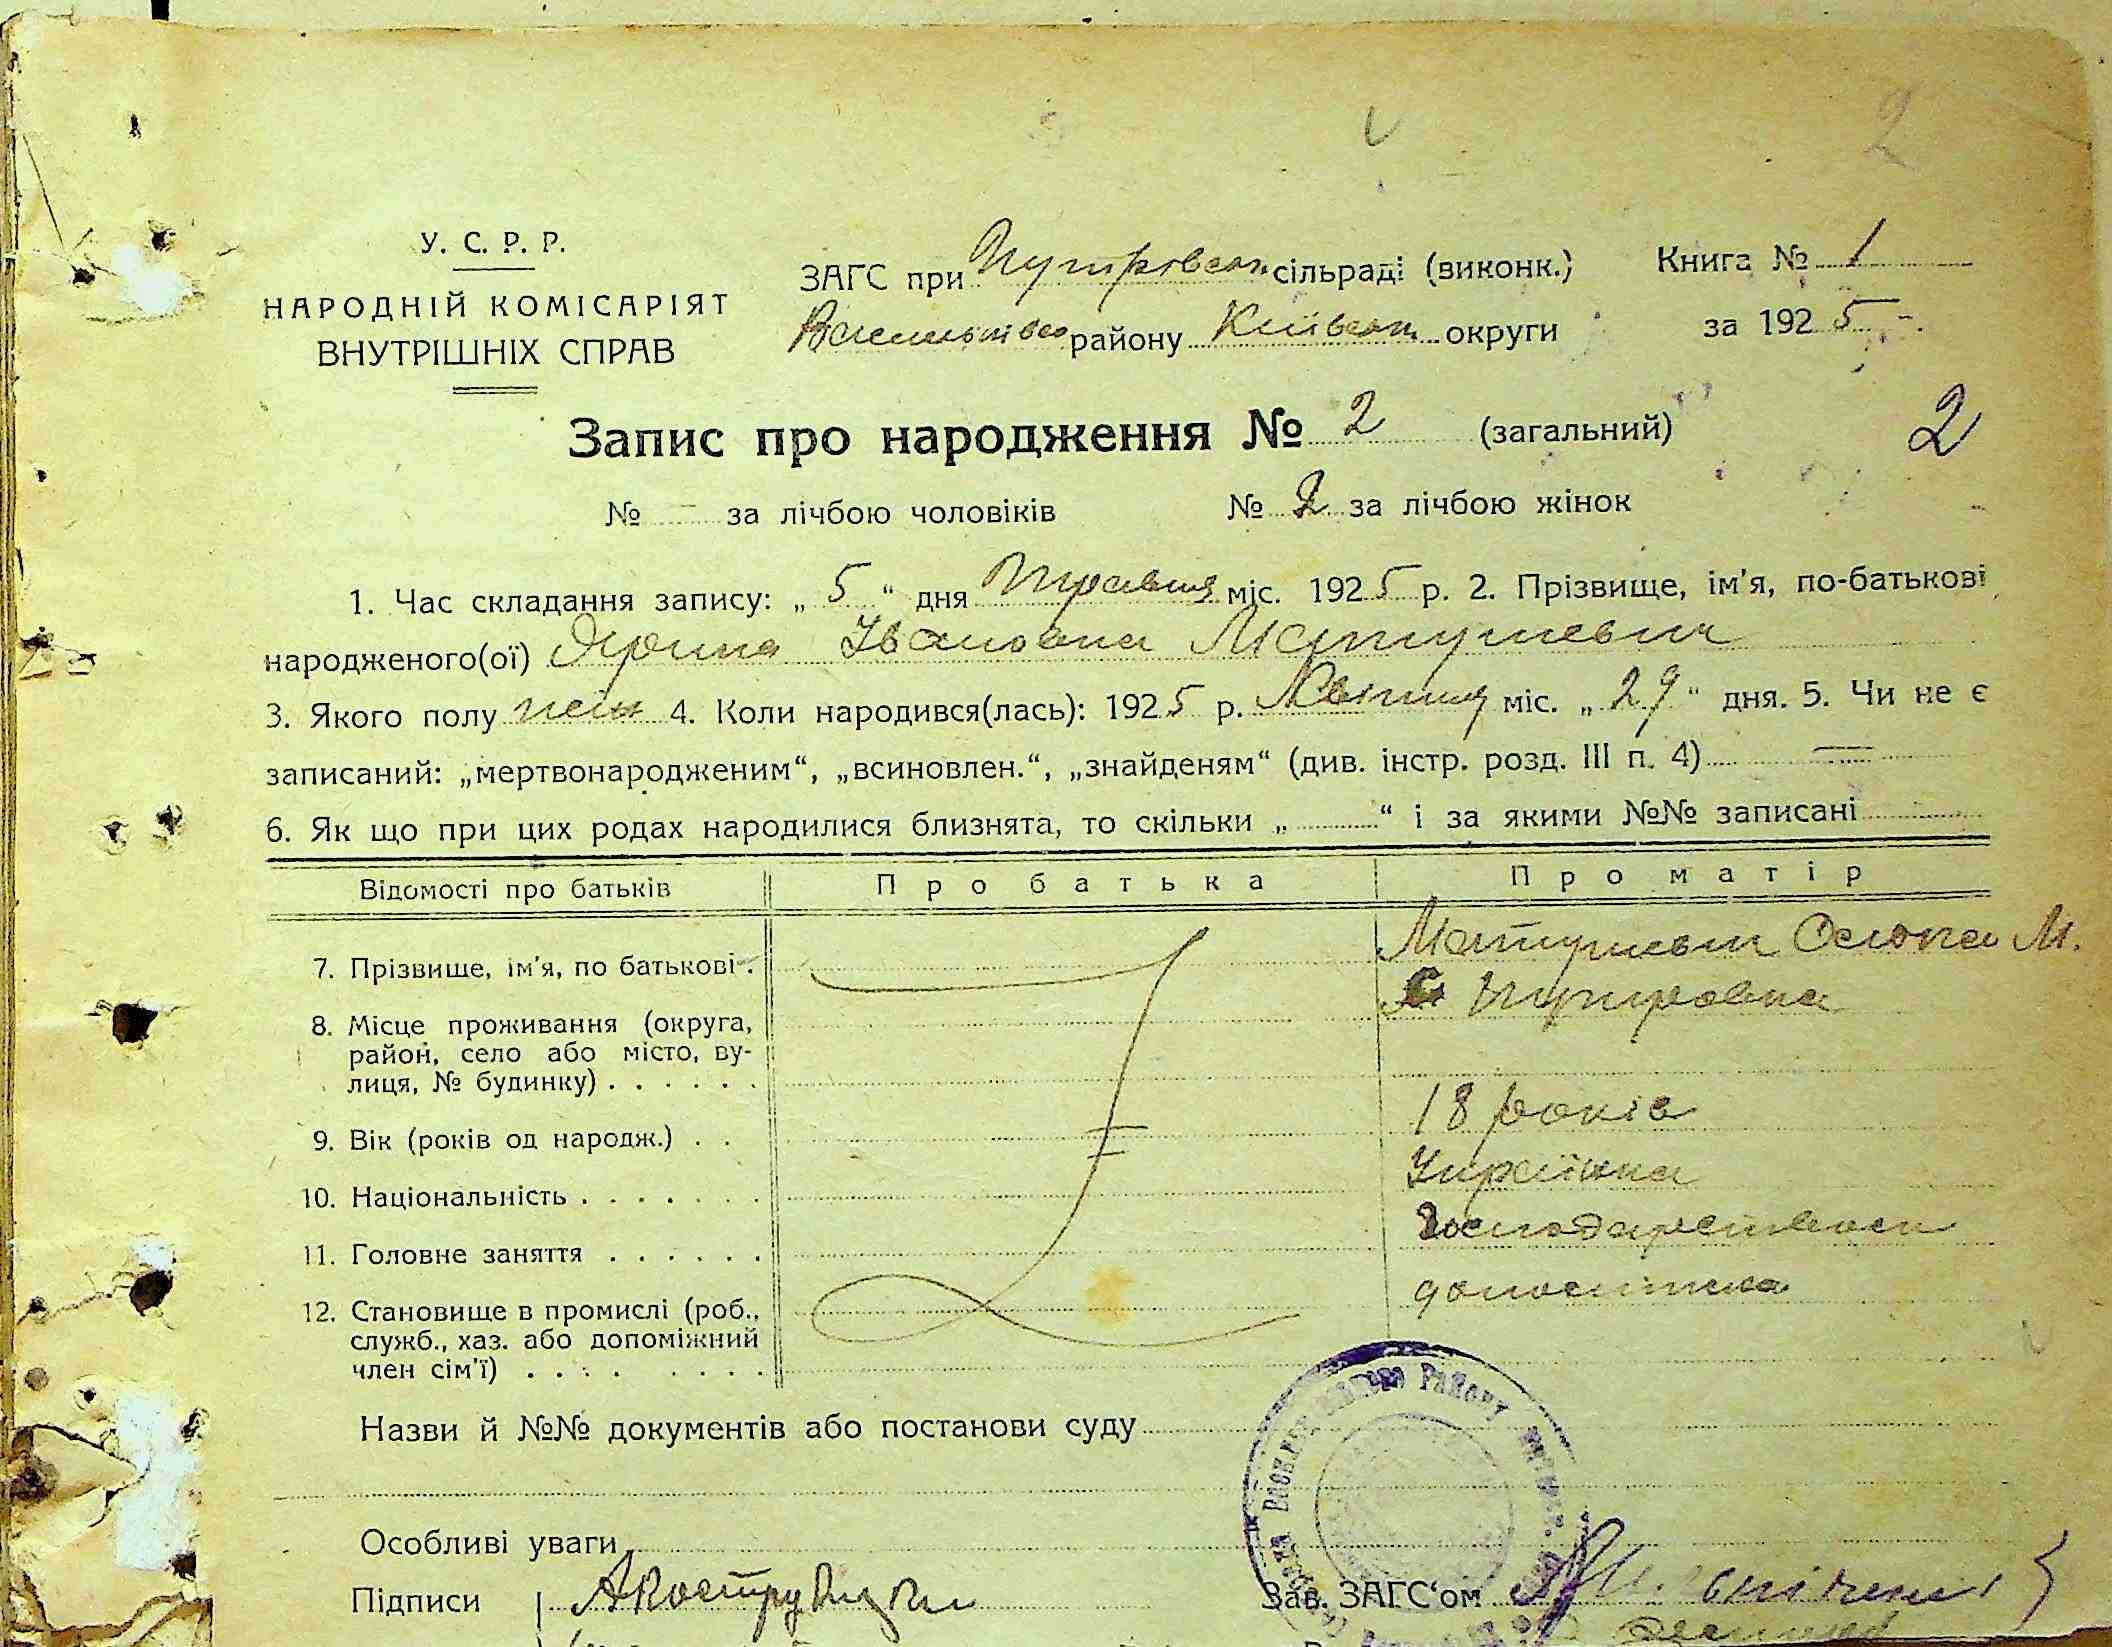 2
У. С. Р. Р.
НАРОДНІЙ КОМІСАРІЯТ
ВНУТРІШНІХ СПРАВ
ЗАГС при Путрівськ. сільраді (виконк.)
Васильківсь району Київськ. округи
Книга № 1
за 1925
Запис про народження № 2 (загальний)
2
№ – за лічбою чоловіків № 2 за лічбою жінок
1. Час складання запису: „ 5 “ дня Травня міс. 1925 р. 2. Прізвище, ім'я, по-батькові
народженого(ої) Ярина Івановна Матушевич
3. Якого полу жін 4. Коли народився(лась): 1925 р. Квітня міс. „ 29 “ дня. 5. Чи не є
записаний: „мертвонародженим“, „всиновлен.“, „знайденям“ (див. інстр. розд. III п. 4) —
6. Як що при цих родах народилися близнята, то скільки „ “ і за якими №№ записані
Відомості про батьків Про батька Про матір
7. Прізвище, ім'я, по батькові . Матушевич М.
8. Місце проживання (округа, С Путровка
район, село або місто, ву-
лиця, № будинку) . . . . . .
9. Вік (років од народж.) . . 18 років
10. Національність . . . . . . . Українка
11. Головне заняття . . . . . .
12. Становище в промислі (роб.,
служб., хаз. або допоміжний
член сім'ї) . . . . . . . .
Назви й №№ документів або постанови суду
Району
Особливі уваги
Підписи Зав. ЗАГС‘ом